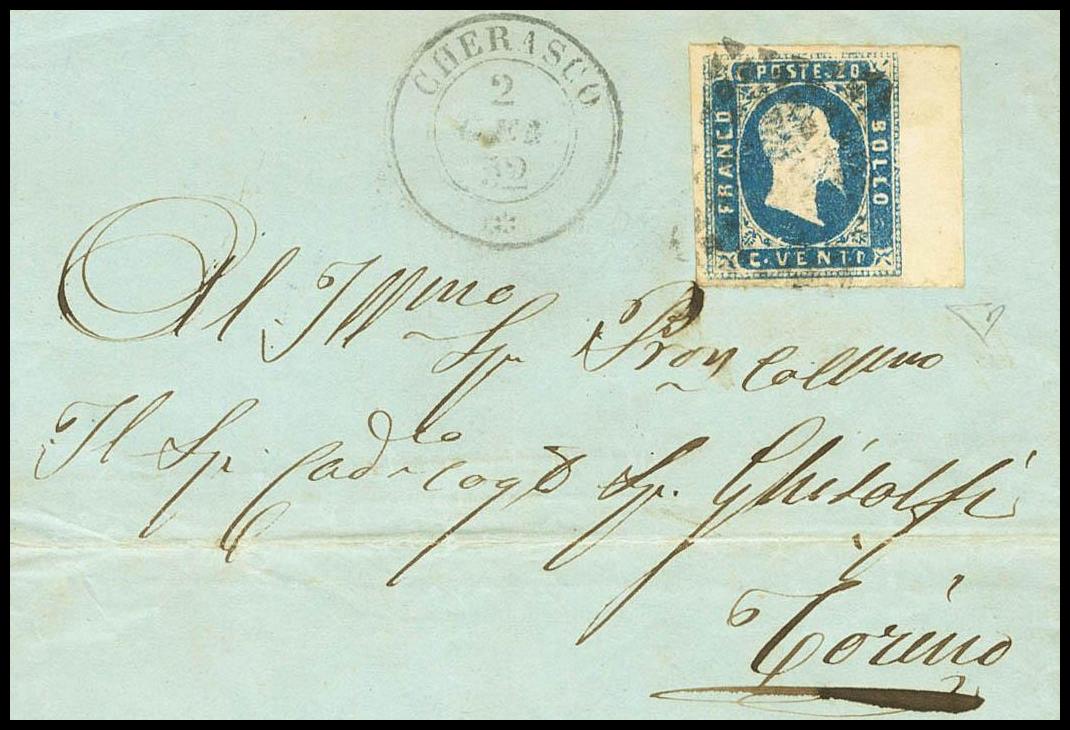 CHERASCO
2
GEN
52
POSTE. 20
FRANCO
BOLLO
C. VENTI
Al Ill.mo
Sig. Pron Coll.mo
Il Sig.
Sig. Ghisolfi
Torino